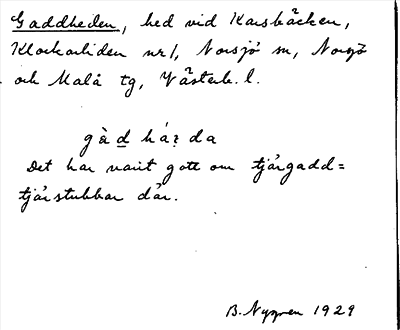 Gaddheden, hed vid Karsbäcken,
Klockarliden nr 1, Norsjö sn, Norsjö
och Malå tg, Västerb. l.
gàd háẓda
Det har varit gott om tjärgadd=
tjärstubbar där.
B. Nygren 1929